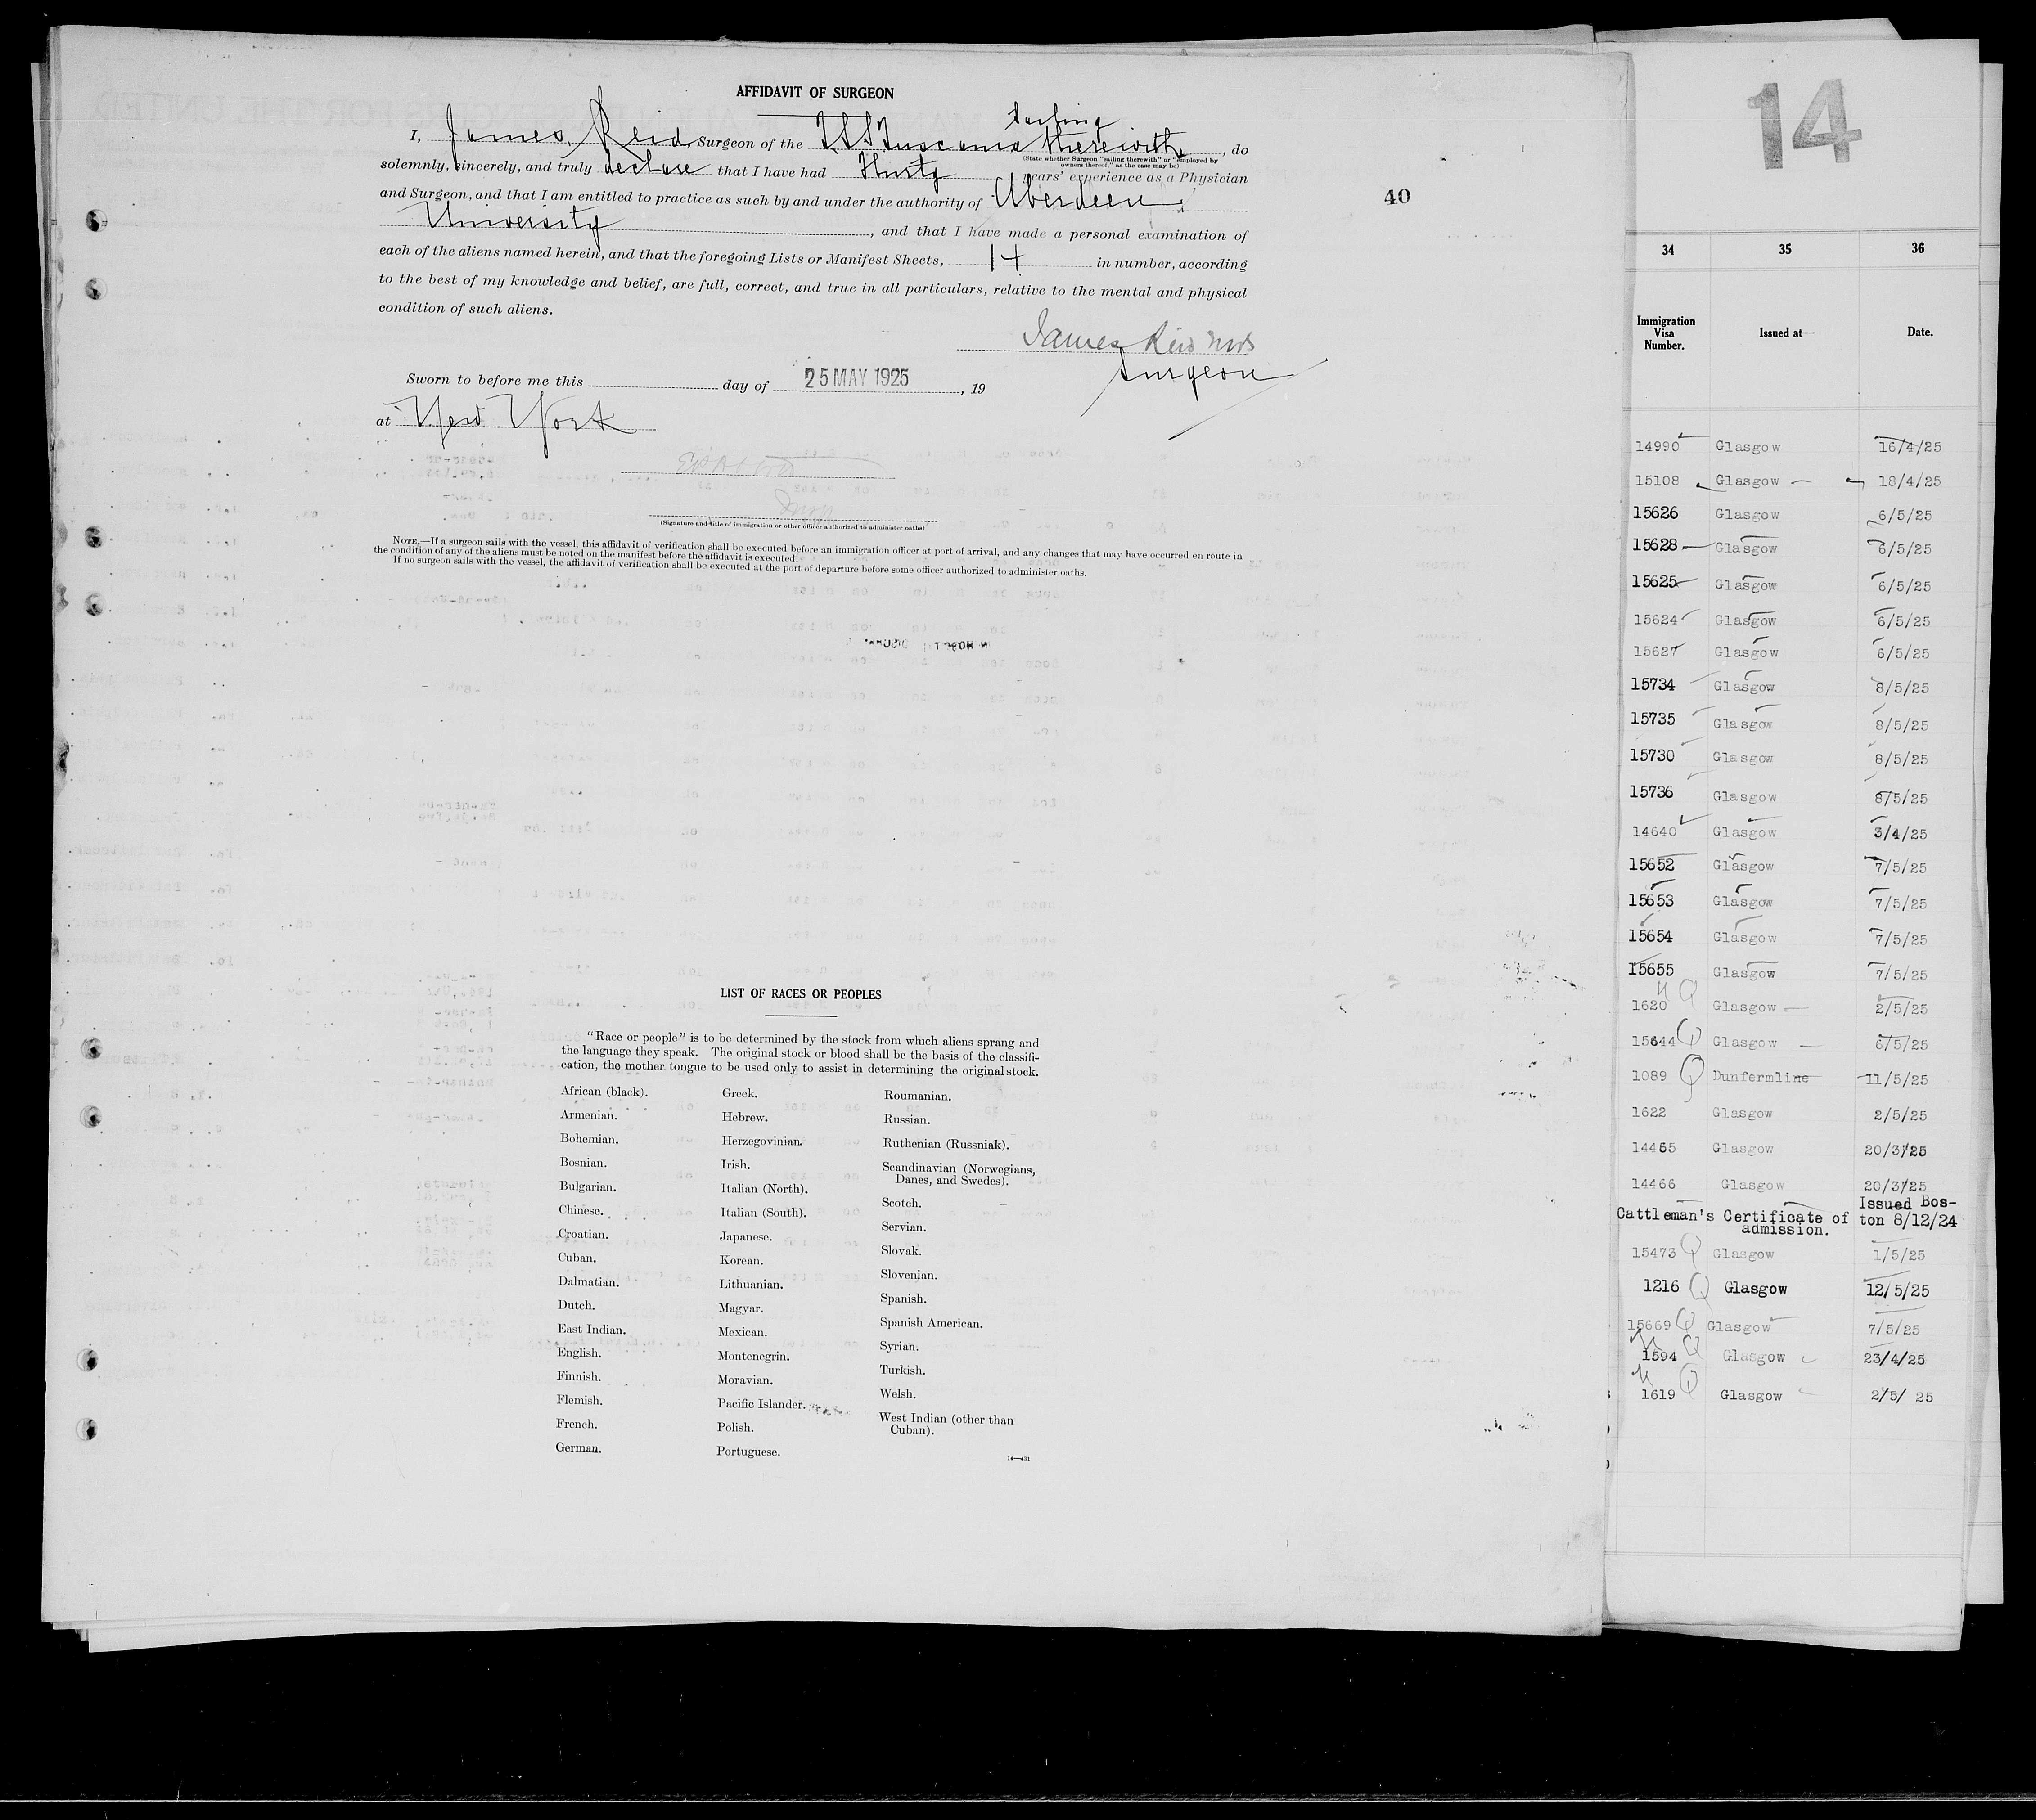 AFFIDAVIT OF SURGEON
sailing
I, James Reid, Surgeon of the T.S.S. Tuscania therewith, do
(State whether Surgeon "sailing therewith" or "employed by
owners thereof," as the case may be)
solemnly, sincerely, and truly declare that I have had Thirty years' experience as a Physician
and Surgeon, and that I am entitled to practice as such by and under the authority of Aberdeen
University, and that I have made a personal examination of
each of the aliens named herein, and that the foregoing Lists or Manifest Sheets, 14 in number, according
to the best of my knowledge and belief, are full, correct, and true in all particulars, relative to the mental and physical
condition of such aliens.
James Reid
Surgeon
Sworn to before me this day of 25 MAY 1925, 19
at New York
(Signature and title of immigration or other officer authorized to administer oaths)
NOTE.—If a surgeon sails with the vessel, this affidavit of verification shall be executed before an immigration officer at port of arrival, and any changes that may have occurred en route in
the condition of any of the aliens must be noted on the manifest before the affidavit is executed.
If no surgeon sails with the vessel, the affidavit of verification shall be executed at the port of departure before some officer authorized to administer oaths.
LIST OF RACES OR PEOPLES
"Race or people" is to be determined by the stock from which aliens sprang and
the language they speak. The original stock or blood shall be the basis of the classifi-
cation, the mother tongue to be used only to assist in determining the original stock.
African (black).
Armenian.
Bohemian.
Bosnian.
Bulgarian.
Chinese.
Croatian.
Cuban.
Dalmatian.
Dutch.
East Indian.
English.
Finnish.
Flemish.
French.
German.
Greek.
Hebrew.
Herzegovinian.
Irish.
Italian (North).
Italian (South).
Japanese.
Korean.
Lithuanian.
Magyar.
Mexican.
Montenegrin.
Moravian.
Pacific Islander.
Polish.
Portuguese.
Roumanian.
Russian.
Ruthenian (Russniak).
Scandinavian (Norwegians,
Danes, and Swedes).
Scotch.
Servian.
Slovak.
Slovenian.
Spanish.
Spanish American.
Syrian.
Turkish.
Welsh.
West Indian (other than
Cuban).
14—431
40
14
34 35 36
Immigration
Visa
Number.
Issued at—
Date.
14990 Glasgow 16/4/25
15108 Glasgow 18/4/25
15626 Glasgow 6/5/25
15628 Glasgow 6/5/25
15625 Glasgow 6/5/25
15624 Glasgow 6/5/25
15627 Glasgow 6/5/25
15734 Glasgow 8/5/25
15735 Glasgow 8/5/25
15730 Glasgow 8/5/25
15736 Glasgow 8/5/25
14640 Glasgow 3/4/25
15652 Glasgow 7/5/25
15653 Glasgow 7/5/25
15654 Glasgow 7/5/25
15655 Glasgow 7/5/25
1620 Q Glasgow 2/5/25
15644 Q Glasgow 6/5/25
1089 Q Dunfermline 11/5/25
1622 Glasgow 2/5/25
14465 Glasgow 20/3/25
14466 Glasgow 20/3/25
Cattleman's Certificate of admission. Issued Bos-
ton 8/12/24
15473 Q Glasgow 1/5/25
1216 Q Glasgow 12/5/25
15669 Q Glasgow 7/5/25
1594 Q Glasgow 23/4/25
1619 Q Glasgow 2/5/ 25